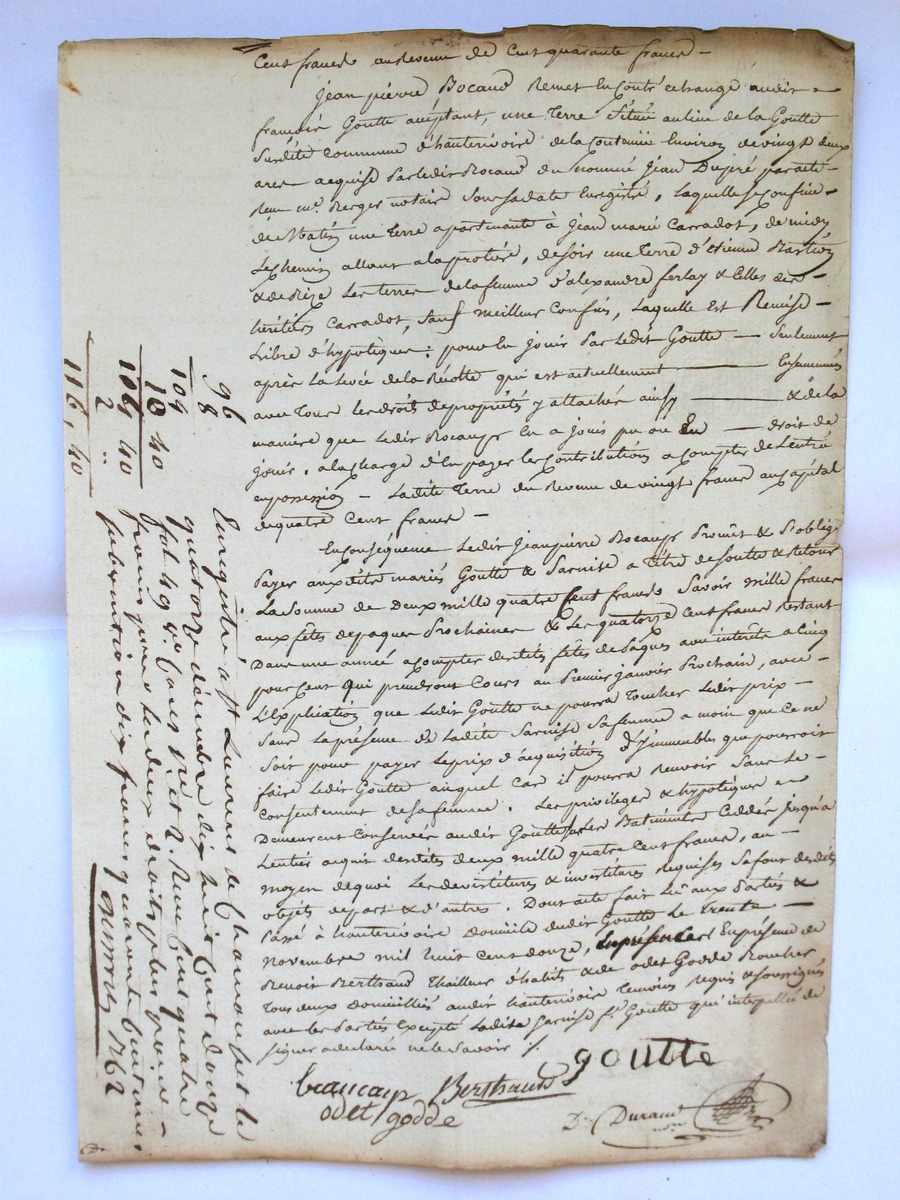 Cent francs au Revenu de Cent quarante francs —
Jean pierre Bocaud Remet En Contre echange audit
françois Goutte acceptant, une Terre Située au lieu de la Goutte
Surdite Commune d'hauterivoire de la Contenue Environ de vingt deux
ares acquise Par ledit Bocaud du nommé Jean Dupré par acte
Reçu me. Berger notaire Sous sa date Enregistré, laquelle Se Confine
de Matin une Terre apartenante à Jean marie Carradot, de midy
Le Chemin allant a la , de soir une Terre d'etienne
& de Bize Les terres de la femme d'alexandre ferlay & Celles des
héritiers Carradot, Sauf meilleur Confins, Laquelle Est Remise
Libre d'hypotèques: pour En jouir Par Ledit Goutte — Seulement
après La levée de la Récolte qui est actuellement — Ensemencés
avec Tous les droits de propriétés y attachés ainsy — & de la
manière que Ledit Bocaud En a joui pu ou En — droit de
jouir. a la Charge d'En payer les Contributions a Compter de L'entrée
en possession — Ladite Terre du Revenu de vingt francs au Capital
de quatre Cent francs —
En Conséquence Ledit Jean pierre Bocaud Promet & S'oblige
Payer auxdits mariés Goutte & Sarnise a Titre de Soutte & Retour
La Somme de Deux mille quatre Cent francs Savoir mille francs
aux fêtes de paques Prochaines & Les quatorze Cent francs Restant
Dans une année a Compter desdites fêtes de Pâques avec intérêts a Cinq
pour Cent qui prendront Cours au Premier janvier Prochain, avec
L'Explication que Ledit Goutte ne pourra Toucher Ledit prix —
Sans La présence de Ladite Sarnise Sa femme a moin que Ce ne
Soit pour payer Le prix d'acquisition d'Immeubles que pourroit
faire Ledit Goutte auquel Cas il pourra Recevoir Sans Le
Consentement de Sa femme. Les privileges & hypotèques
Demeurent Conservés audit Goutte Sur les Batiments Cèddés jusqu'a
L'entier acquit desdits deux mille quatre Cent francs, au —
moyen de quoi Les devestitures & investitures Requises Se font desdits
objets de part & d'autres. Dont acte fait Lû aux Parties &
Passé à hauterivoire Domicile dudit Goutte Le Trente —
Novembre mil huit Cent douze, En présence de
Benoit Berthaud Tailleur d'habits & de odet Godde Boucher
Tous deux Domiciliés audit hauterivoire Temoins Requis & Soussignés
avec les Parties Excepté Ladite Sarnise fe. Goutte qui interpellée de
Signer a declaré ne le Savoir ./.
goutte
beaucaup Berthaud
odet godde
Dn. Durand
nore
96
8
109 40
10
106, 40
2 ..
116, 40
Enregistré à St Laurent de Chamousset le
quatorze décembre dix huit Cent douze
fol 49 vo Cases 1re et 2. Reçu Cent quatre
francs pour les deux droits plus pour
subvention dix francs quarante Centimes